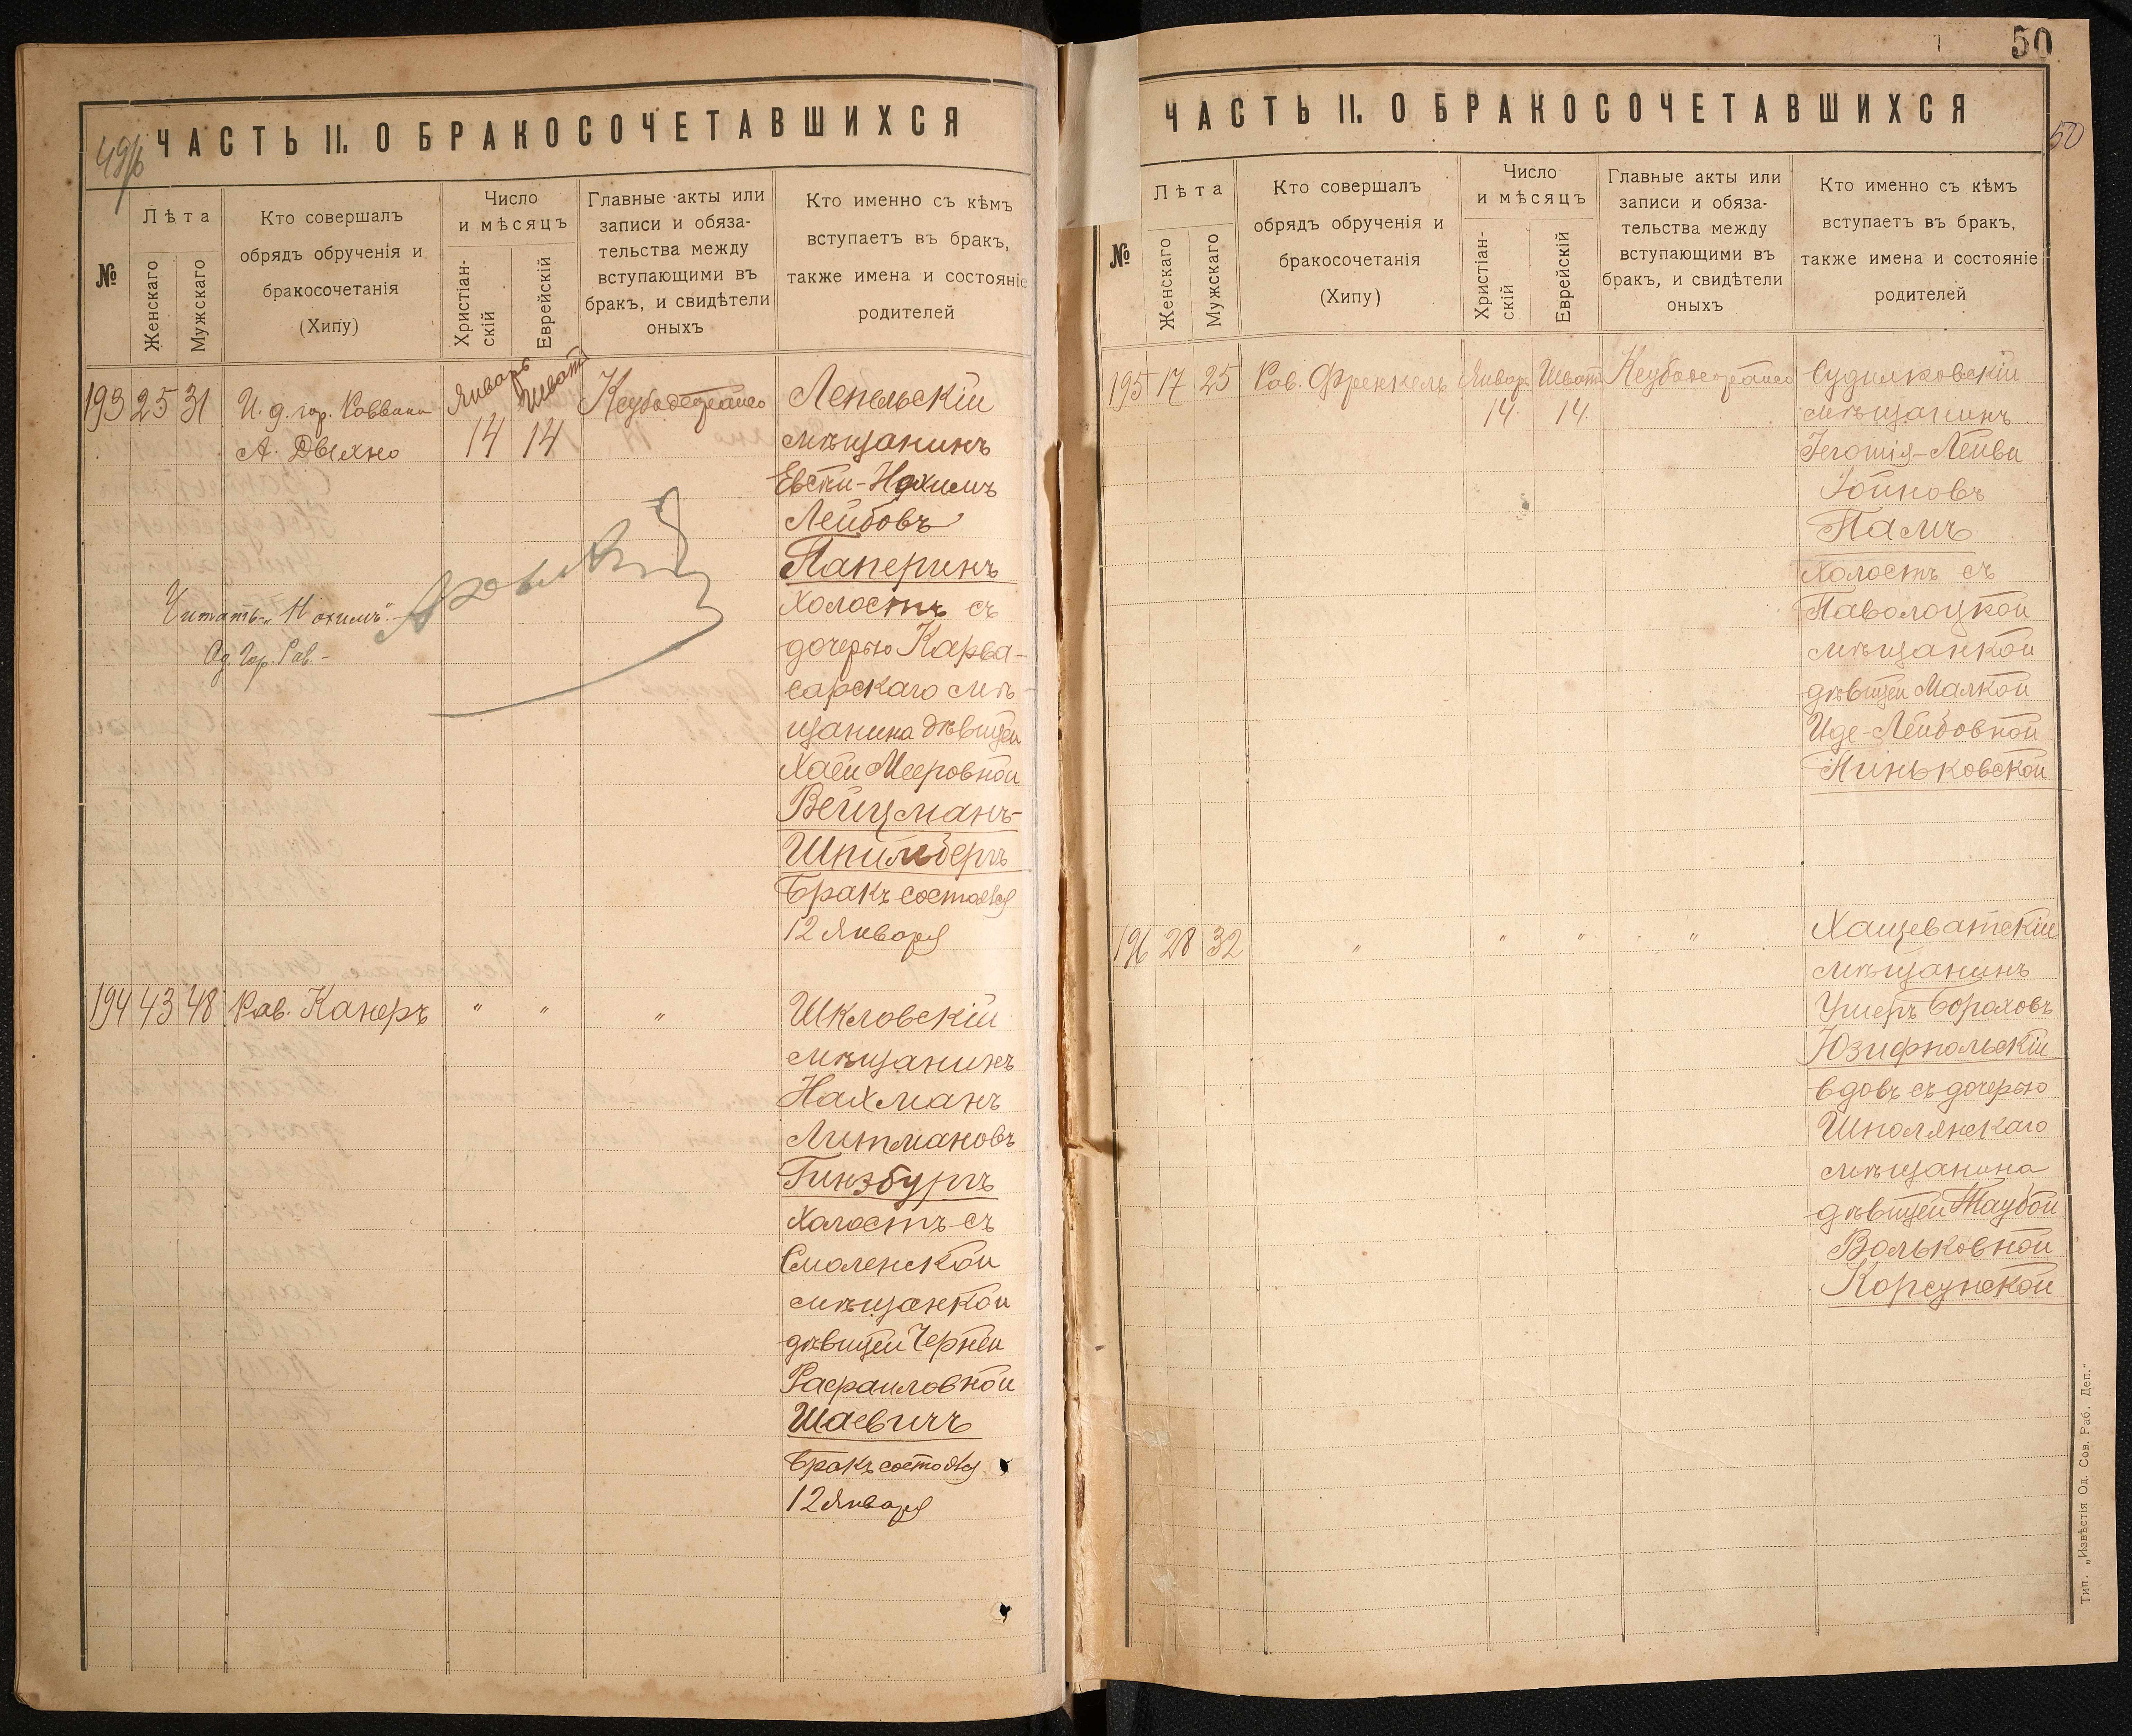 49/б
ЧАСТЬ II. О БРАКОСОЧЕТАВШИХСЯ
№
Лѣта
Женскаго
Мужскаго
Кто совершалъ
обрядъ обрученія и
бракосочетанія
(Хипу)
Число
и мѣсяцъ
Христіан-
скій
Еврейскій
Главные акты или
записи и обяза-
тельства между
вступающими въ
бракъ, и свидѣтели
оныхъ
Кто именно съ кѣмъ
вступаетъ въ бракъ,
также имена и состояніе
родителей
193 25 31 И. д. гор. Раввина
А. Двехно
Январь Шватъ
14 14
Лепельскій
мѣщанинъ
Евсти-Нохимъ
Лейбовъ
Паперинъ
Холостъ съ
дочерью Карва-
сарскаго мѣ-
щанина дѣвицей
Хаей Мееровной
Вейцманъ-
Шпильбергъ
Бракъ состоялся
12 Января
Читать „Нохимъ"
Од. Гор. Рав-
194 43 48 Рав. Канеръ " " "
Шкловскій
мѣщанинъ
Нахманъ
Литмановъ
Гинзбургъ
Холостъ съ
Смоленской
мѣщанкой
дѣвицей Черней
Рафаиловной
Шаевичъ
Бракъ состоялся
12 Января
50
50
ЧАСТЬ II. О БРАКОСОЧЕТАВШИХСЯ
№
Лѣта
Женскаго
Мужскаго
Кто совершалъ
обрядъ обрученія и
бракосочетанія
(Хипу)
Число
и мѣсяцъ
Христіан-
скій
Еврейскій
Главные акты или
записи и обяза-
тельства между
вступающими въ
бракъ, и свидѣтели
оныхъ
Кто именно съ кѣмъ
вступаетъ въ бракъ,
также имена и состояніе
родителей
195 17 25 Рав. Френкель Январ Шват
14 14
Судилковскій
мѣщанинъ
Іегошія-Лейви
Іойновъ
Палъ
Холостъ съ
Паволоцкой
мѣщанкой
дѣвицей Малкой
Иде-Лейбовной
Киньковской
196 28 32 " " " "
Хащеватскій
мѣщанинъ
Ушеръ Бораховъ
Юзифпольскій
вдовъ съ дочерью
Шполянскаго
мѣщанина
дѣвицей Таубой
Вольковной
Корсунской
Тип. „Извѣстія Од. Сов. Раб. Деп."